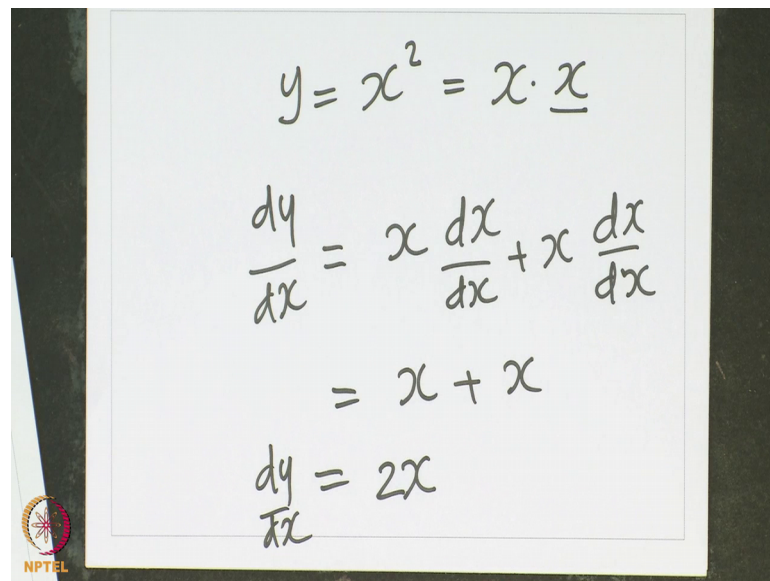 y = x² = x · x
dy/dx = x dx/dx + x dx/dx
= x + x
dy/dx = 2x
NPTEL